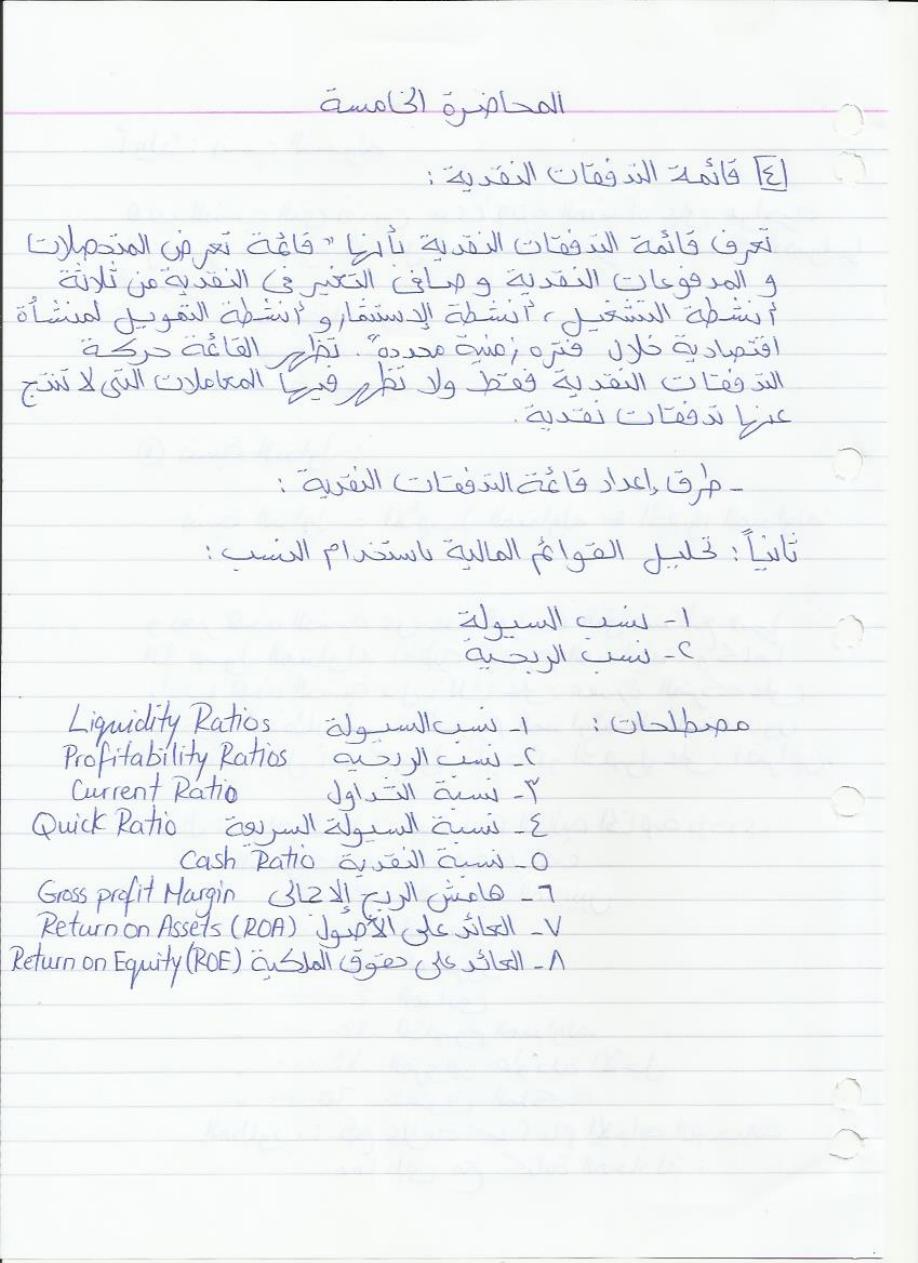 المحاضرة الخامسة
[٤] قائمة التدفقات النقدية :
تعرف قائمة التدفقات النقدية بأنها " قائمة تعرض المتحصلات
و المدفوعات النقدية و صافى التغير فى النقدية من ثلاثة
أنشطة التشغيل ، أنشطة الإستثمار و أنشطة التمويل لمنشأة
اقتصادية خلال فتره زمنية محدده". تظهر القائمة حركة
التدفقات النقدية فقط ولا تظهر فيها المعاملات التى لا تنتج
عنها تدفقات نقدية.
- طرق إعداد قائمة التدفقات النقدية :
ثانياً : تحليل القوائم المالية باستخدام النسب :
١- نسب السيولة
٢- نسب الربحية
مصطلحات : ١- نسب السيولة Liquidity Ratios
٢- نسب الربحية Profitability Ratios
٣- نسبة التداول Current Ratio
٤- نسبة السيولة السريعة Quick Ratio
٥- نسبة النقدية Cash Ratio
٦- هامش الربح الإجمالى Gross profit Margin
٧- العائد على الأصول Return on Assets (ROA)
٨- العائد على حقوق الملكية Return on Equity (ROE)